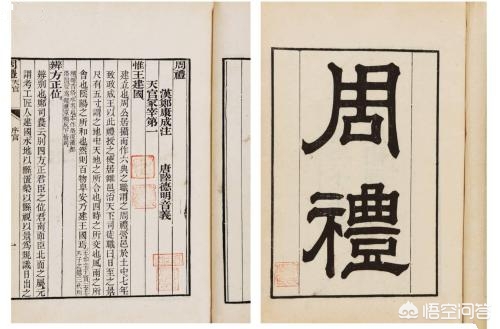 周禮
漢鄭康成注 唐陸德明音義
天官冢宰第一
惟王建國
建立也周公居攝而作六典之職謂之周禮營邑於土中七年
致政成王以此禮授之使居雒邑治天下司徒職曰日至之景
尺有五寸謂之地中天地之所合也四時之所交也風雨之所
會也陰陽之所和也然則百物阜安乃建王國焉
辨方正位
辨別也鄭司農云別四方正君臣之位君南面臣北面之屬元
謂考工匠人建國水地以縣置槷以縣眡以景為規識日出之
周禮 天官 序官 一
周禮
悟空问答